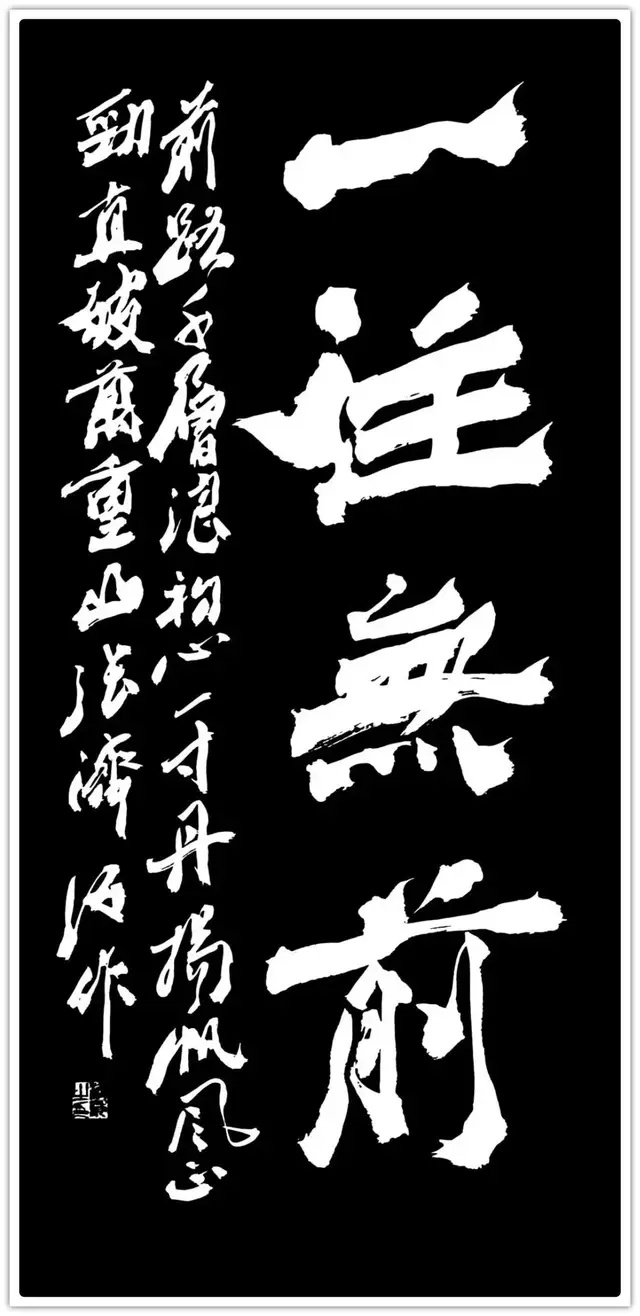 一往無前
前路千層浪初心一寸丹揚帆風正
勁直破萬重山張濟海作